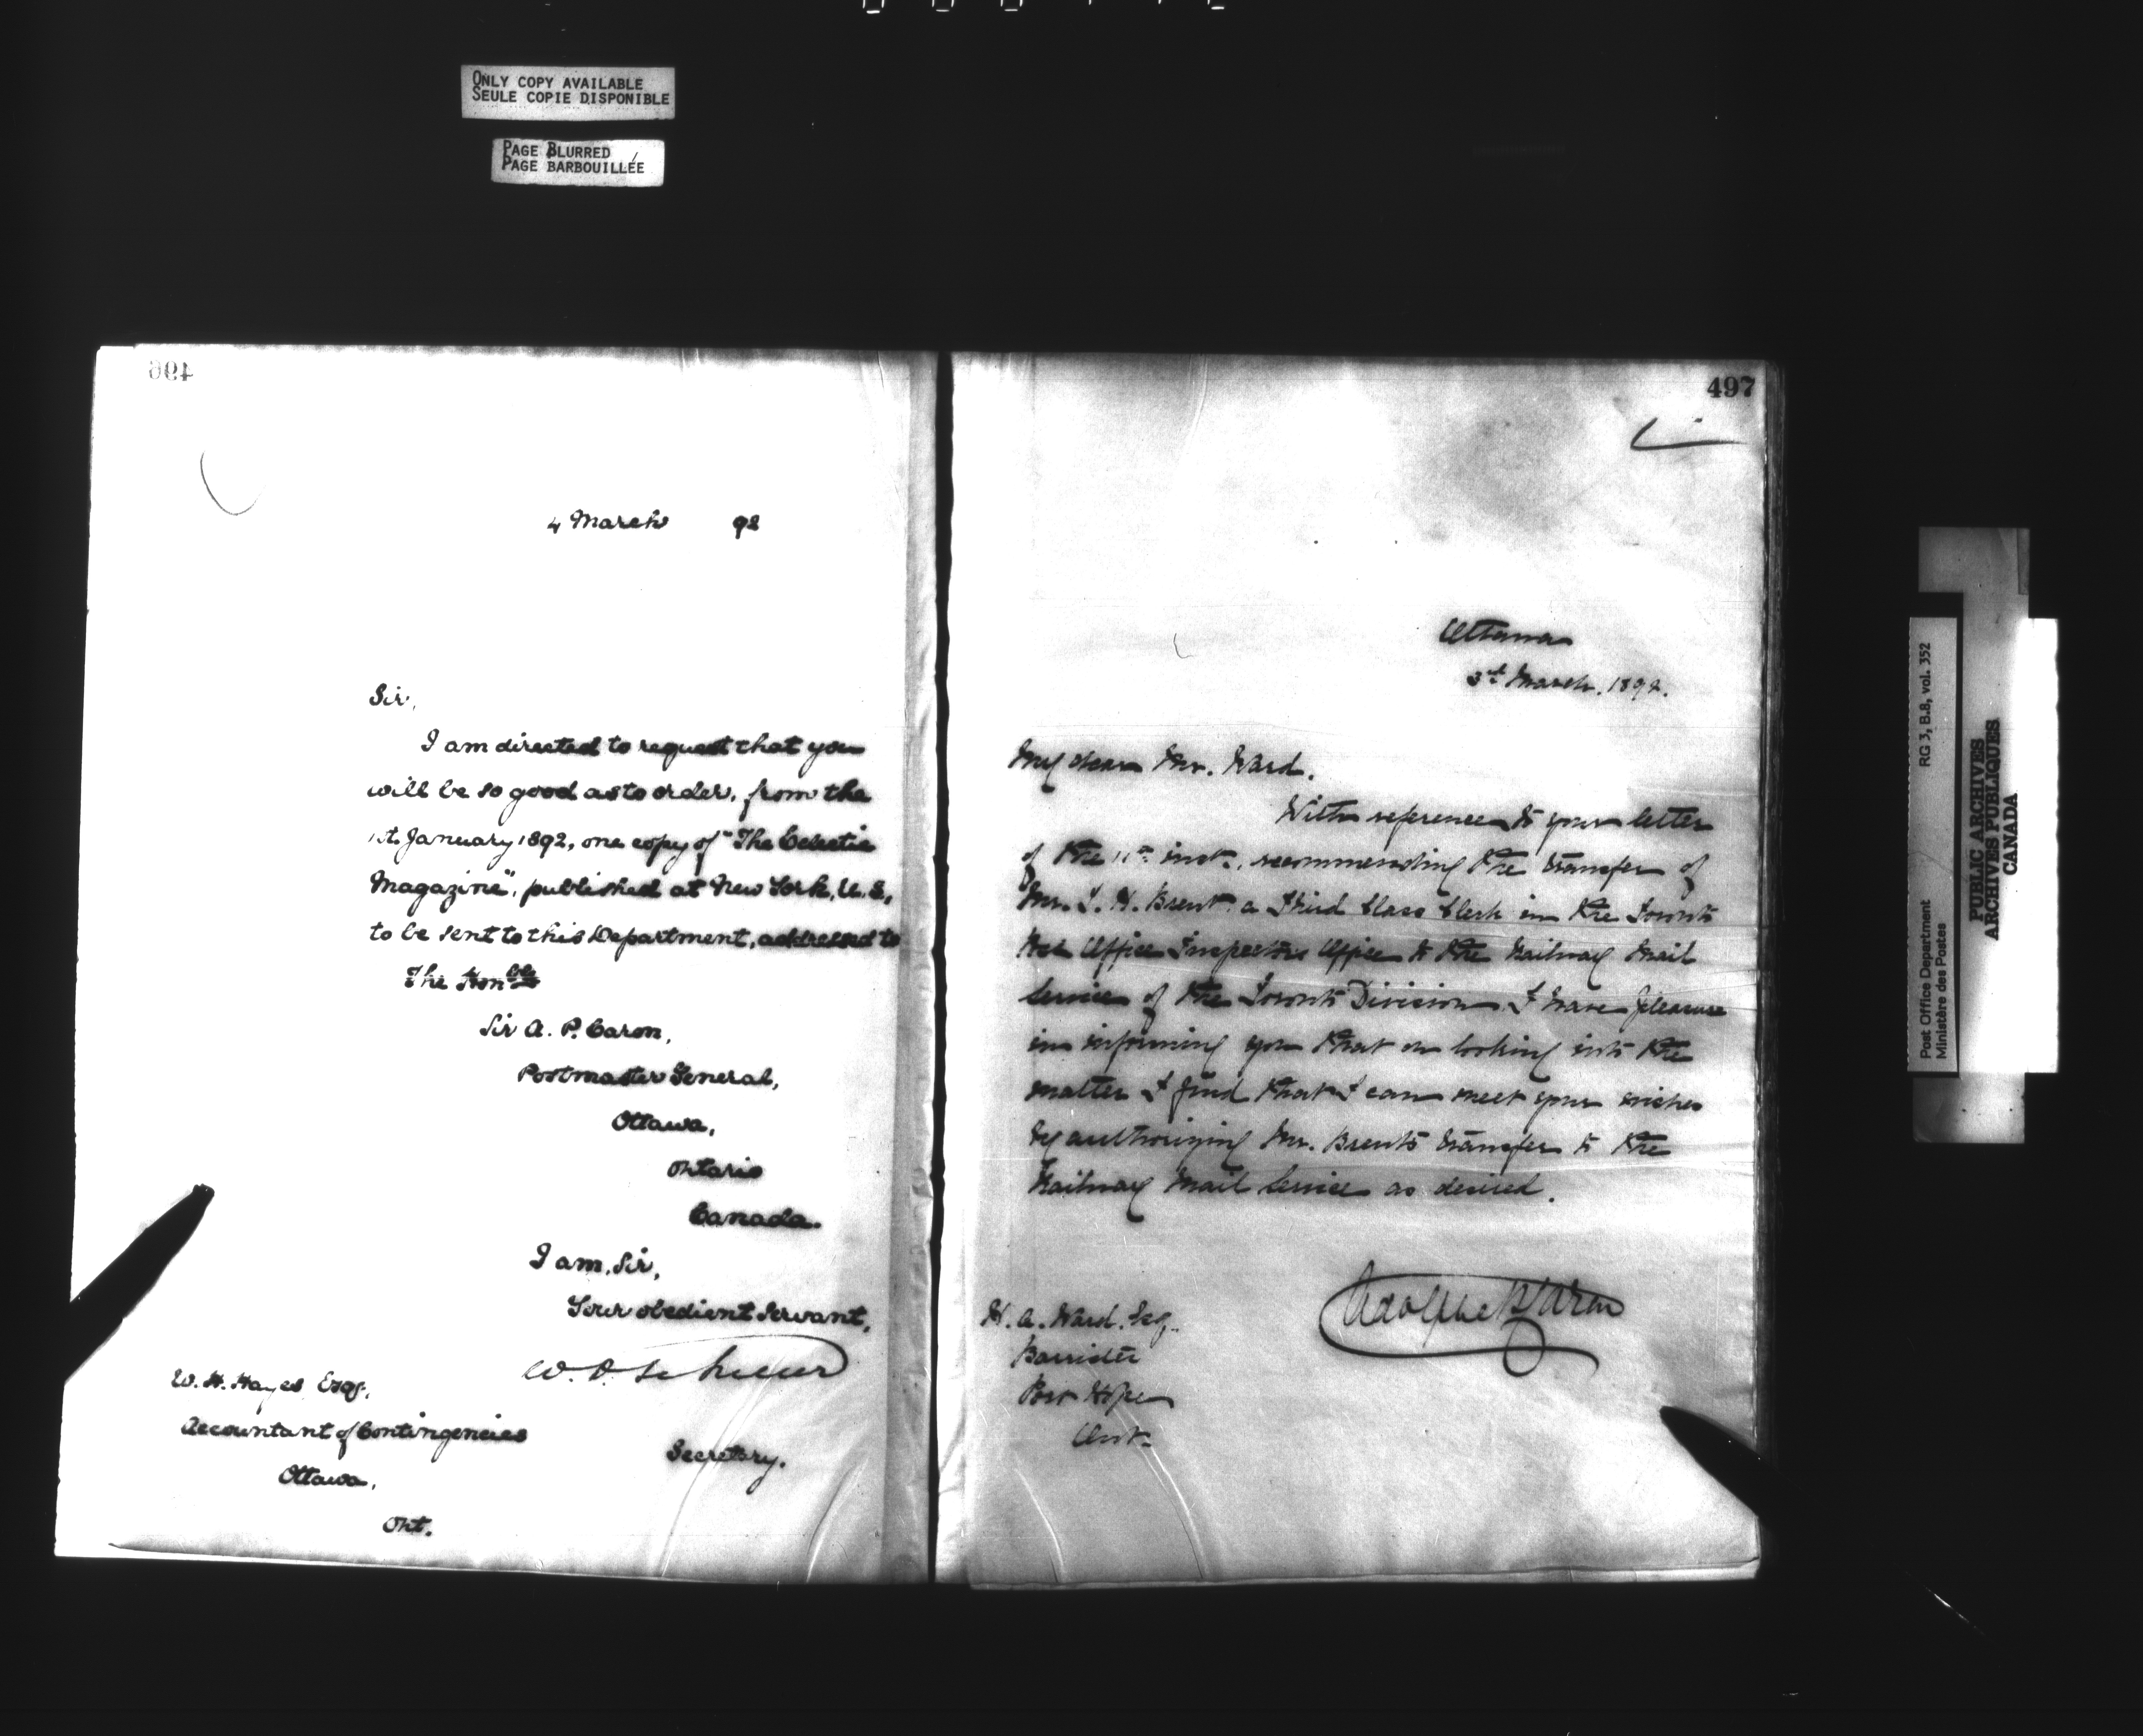 ONLY COPY AVAILABLE
SEULE COPIE DISPONIBLE
PAGE BLURRED
PAGE BARBOUILLÉE
4 March 92
Sir,
I am directed to request that you
will be so good as to order, from the
1st. January 1892, one copy of "The Eclectic
Magazine", published at New York, U.S.,
to be sent to this Department, addressed to
The Honble
Sir A. P. Caron,
Postmaster General,
Ottawa,
Ontario
Canada.
I am, Sir,
Your obedient Servant,
W. H. Hayes Esq.,
Accountant of Contingencies
Secretary.
Ottawa,
Ont.
497
Ottawa
3rd March. 1892.
My dear Mr. Ward.
With reference to your letter
of the inst., recommending the transfer of
Mr. Brent a Third Class Clerk in the Toronto
Post Office Inspectors Office to the Railway Mail
Service of the Toronto Division I have pleasure
in informing you that on looking into the
matter I find that I can meet your wishes
by authorizing Mr. Brents transfer to the
Railway Mail Service as desired.
Adolphe P. Caron
H. A. Ward. Esq.
Barrister
Port Hope
Ont.
Post Office Department RG 3, B.8, vol. 352
Ministère des Postes
PUBLIC ARCHIVES
ARCHIVES PUBLIQUES
CANADA